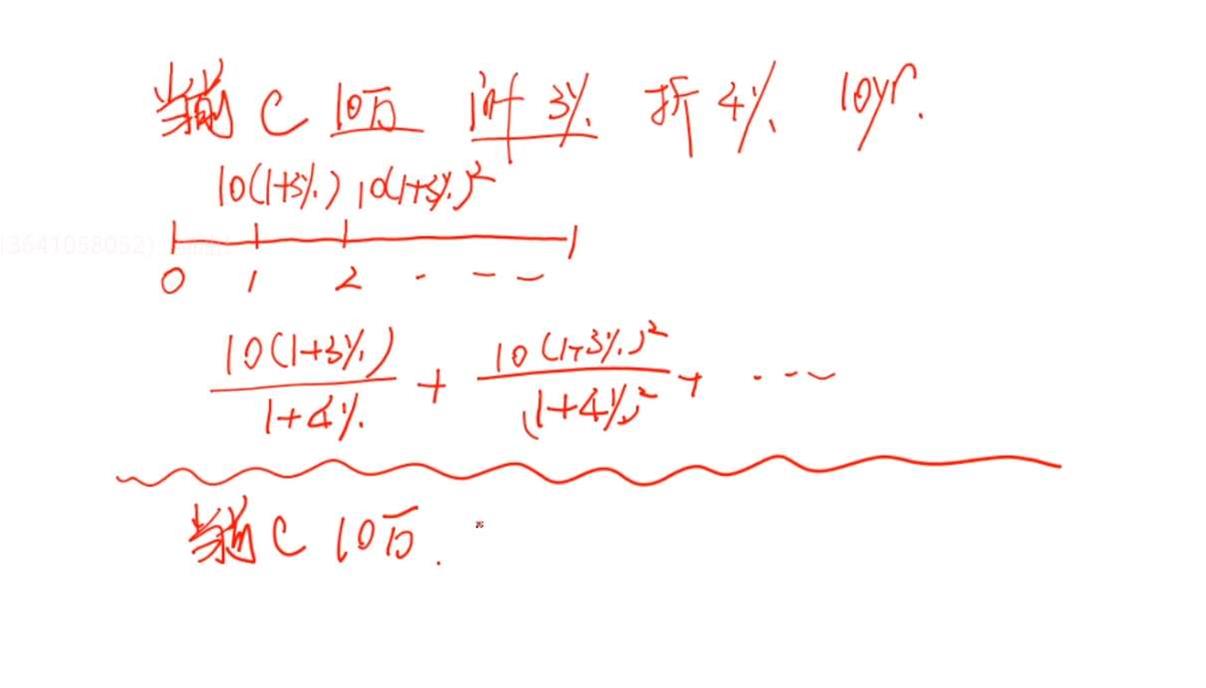 当前 C 10万 个叶 3% 折 4% 10yr.
10(1+3%) 10(1+3%)²
0 1 2 . — —
10(1+3%) / 1+4% + 10(1+3%)² / (1+4%)² + ...
当前 C 10万.